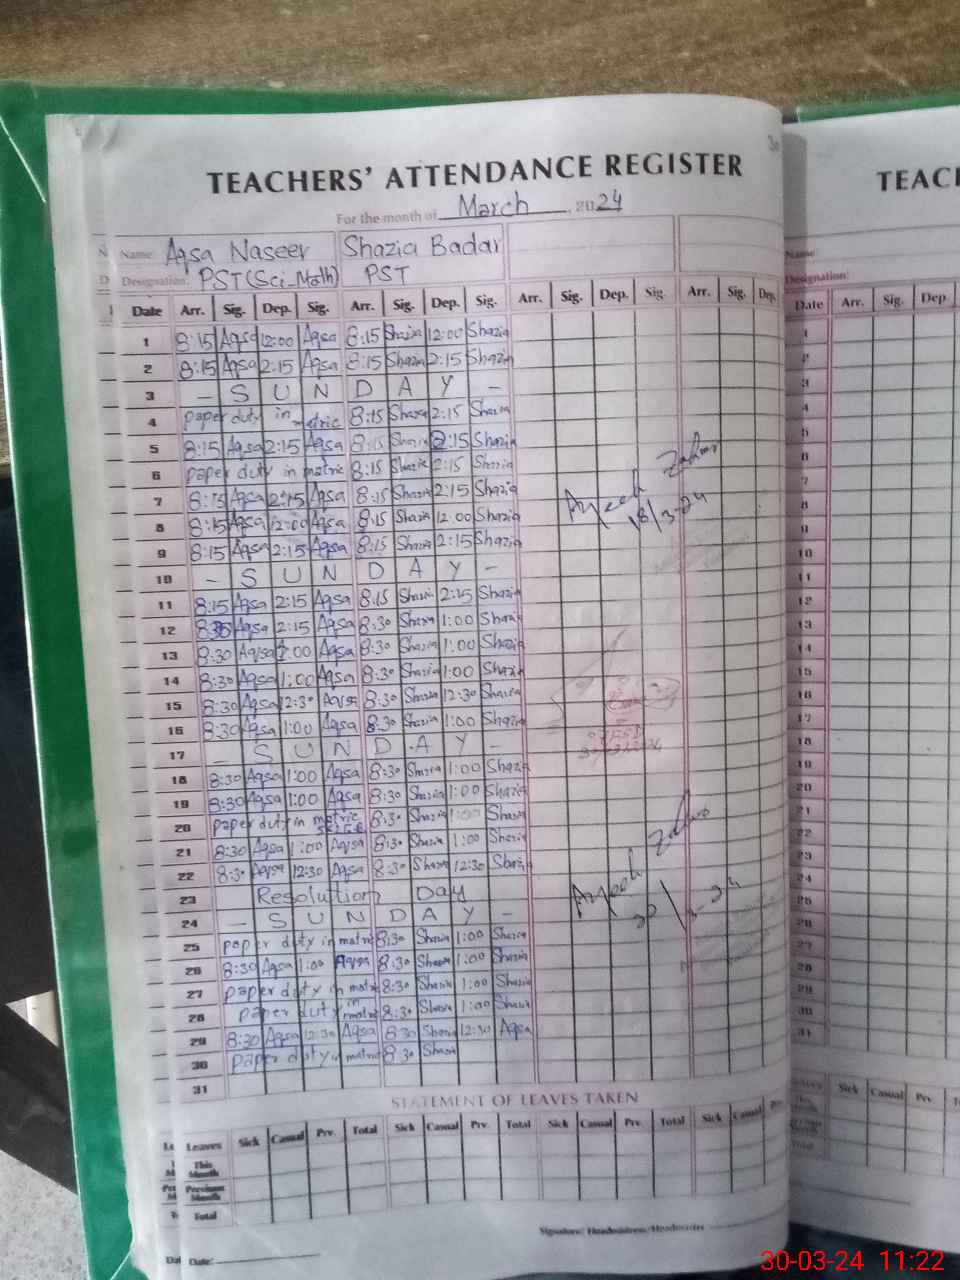 TEACHERS' ATTENDANCE REGISTER
For the month of March, 2024
Name: Aqsa Naseer Shazia Badar
Designation: PST (Sci_Math) PST
Date Arr. Sig. Dep. Sig. Arr. Sig. Dep. Sig. Arr. Sig. Dep. Sig. Arr. Sig. Dep.
1 8:15 Aqsa 12:00 Aqsa 8:15 Shazia 12:00 Shazia
2 8:15 Aqsa 2:15 Aqsa 8:15 Shazia 2:15 Shazia
3 - S U N D A Y -
4 paper duty in metric 8:15 Shazia 2:15 Shazia
5 8:15 Aqsa 2:15 Aqsa 8:15 Shazia 2:15 Shazia
6 paper duty in matric 8:15 Shazia 2:15 Shazia
7 8:15 Aqsa 2:15 Aqsa 8:15 Shazia 2:15 Shazia
8 8:15 Aqsa 12:00 Aqsa 8:15 Shazia 12:00 Shazia
9 8:15 Aqsa 2:15 Aqsa 8:15 Shazia 2:15 Shazia
10 - S U N D A Y -
11 8:15 Aqsa 2:15 Aqsa 8:15 Shazia 2:15 Shazia
12 Aqsa 2:15 Aqsa 8:30 Shazia 1:00 Shazia
13 8:30 Aqsa Aqsa 8:30 Shazia 1:00 Shazia
14 8:30 Aqsa 1:00 Aqsa 8:30 Shazia 1:00 Shazia
15 8:30 Aqsa 12:30 Aqsa 8:30 Shazia 12:30 Shazia
16 8:30 Aqsa 1:00 Aqsa 8:30 Shazia 1:00 Shazia
17 - S U N D A Y -
18 8:30 Aqsa 1:00 Aqsa 8:30 Shazia 1:00 Shazia
19 8:30 Aqsa 1:00 Aqsa 8:30 Shazia 1:00 Shazia
20 paper duty in metric 8:30 Shazia 1:00 Shazia
21 8:30 Aqsa 1:00 Aqsa 8:30 Shazia 1:00 Shazia
22 8:30 Aqsa 12:30 Aqsa 8:30 Shazia 12:30 Shazia
23 Resolution Day
24 - S U N D A Y -
25 paper duty in matric 8:30 Shazia 1:00 Shazia
26 8:30 Aqsa 1:00 Aqsa 8:30 Shazia 1:00 Shazia
27 paper duty in matric 8:30 Shazia 1:00 Shazia
28 paper duty in matric 8:30 Shazia 1:00 Shazia
29 8:30 Aqsa 12:30 Aqsa 8:30 Shazia 12:30 Aqsa
30 paper duty in matric 8:30 Shazia
31
18/3-24
STATEMENT OF LEAVES TAKEN
Leaves Sick Casual Prv. Total Sick Casual Prv. Total Sick Casual Prv. Total Sick Casual
This Month
Previous Month
Total
Signature: Headmaster/Headmistress
Date:
TEAC
Name:
Designation:
Date Arr. Sig. Dep
1
2
3
4
5
6
7
8
9
10
11
12
13
14
15
16
17
18
19
20
21
22
23
24
25
26
27
28
29
30
31
Sick Casual Prv.
30-03-24 11:22